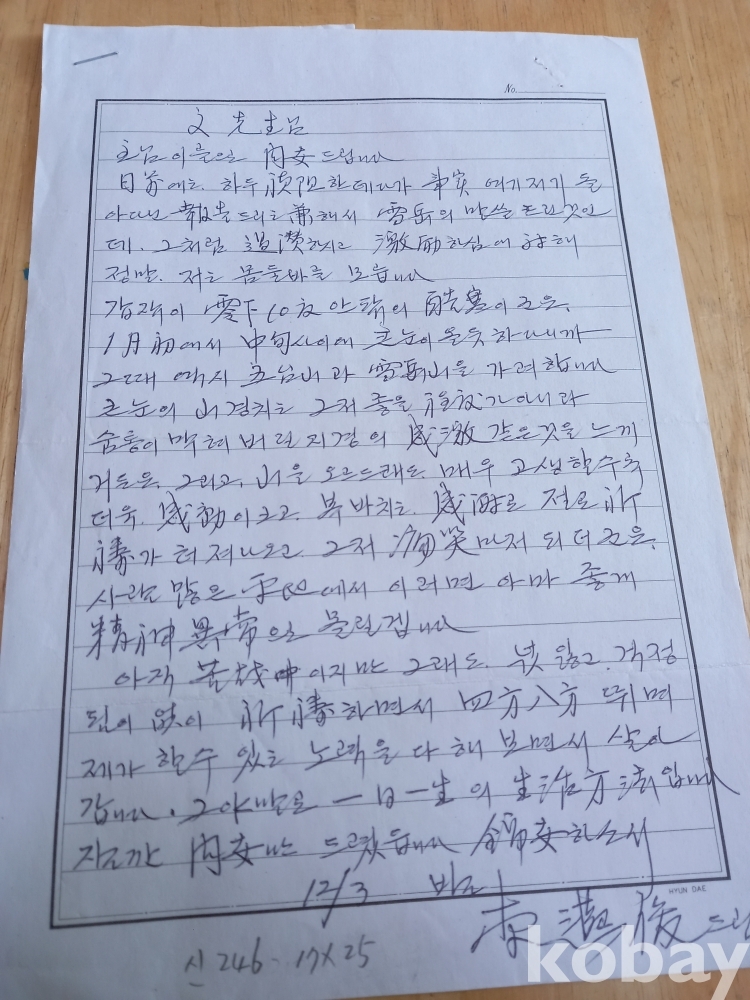 No.
文先生님
主님 이름으로 問安드립니다
目前에는 하두 事実 여기저기 돌
아다닌 報告드리는 兼해서 雪岳의 말씀 드린것인
데. 그처럼 過讚하시고 激励하심에 対해
정말. 저는 몸둘바를 모릅니다
갑자기 零下10度 안팎의 酷寒이군요.
1月初에서 中旬사이에 큰눈이 올듯하니까
그때 역시 五台山과 雪岳山을 가려합니다
큰눈의 山경치는 그저 좋을 程度가 아니라
숨통이 막혀버릴 지경의 感激같은것을 느끼
거든요. 그리고, 山을 오르드래도. 매우 고생할수록
더욱. 感動이 크고. 북바치는. 感謝로 절로 祈
禱가 터져나오고 그저 痛哭마저 되더군요.
사람 많은 平地에서 이러면 아마 좋게
精神異常으로 몰릴겝니다
아직 苦戦中이지만 그래도. 걱정
없이 祈禱하면서 四方八方 뛰며
제가 할수 있는 노력을 다 해보면서 살아
갑니다. 그야말로 一日一生의 生活方法입니다
問安만 드렸읍니다 하소서
12/3
드림
HYUN DAE
신 246-17X25
kobay